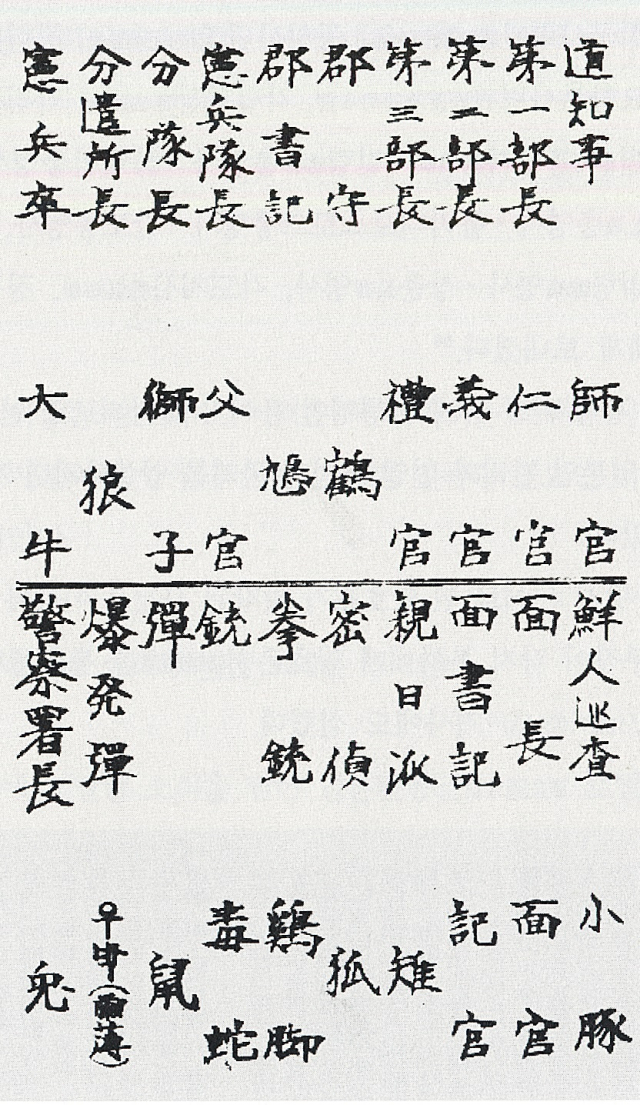 道知事 師官
第一部長 仁官
第二部長 義官
第三部長 禮官
郡守 鶴
郡書記 鳩
憲兵隊長 父官
分隊長 獅子
分遣所長 狼
憲兵卒 大牛
鮮人巡査 小豚
面長 面官
面書記 記官
親日派 雉
密偵 狐
拳銃 鷄脚
銃 毒蛇
彈 鼠
爆発彈 (雨薄)
警察署長 兎